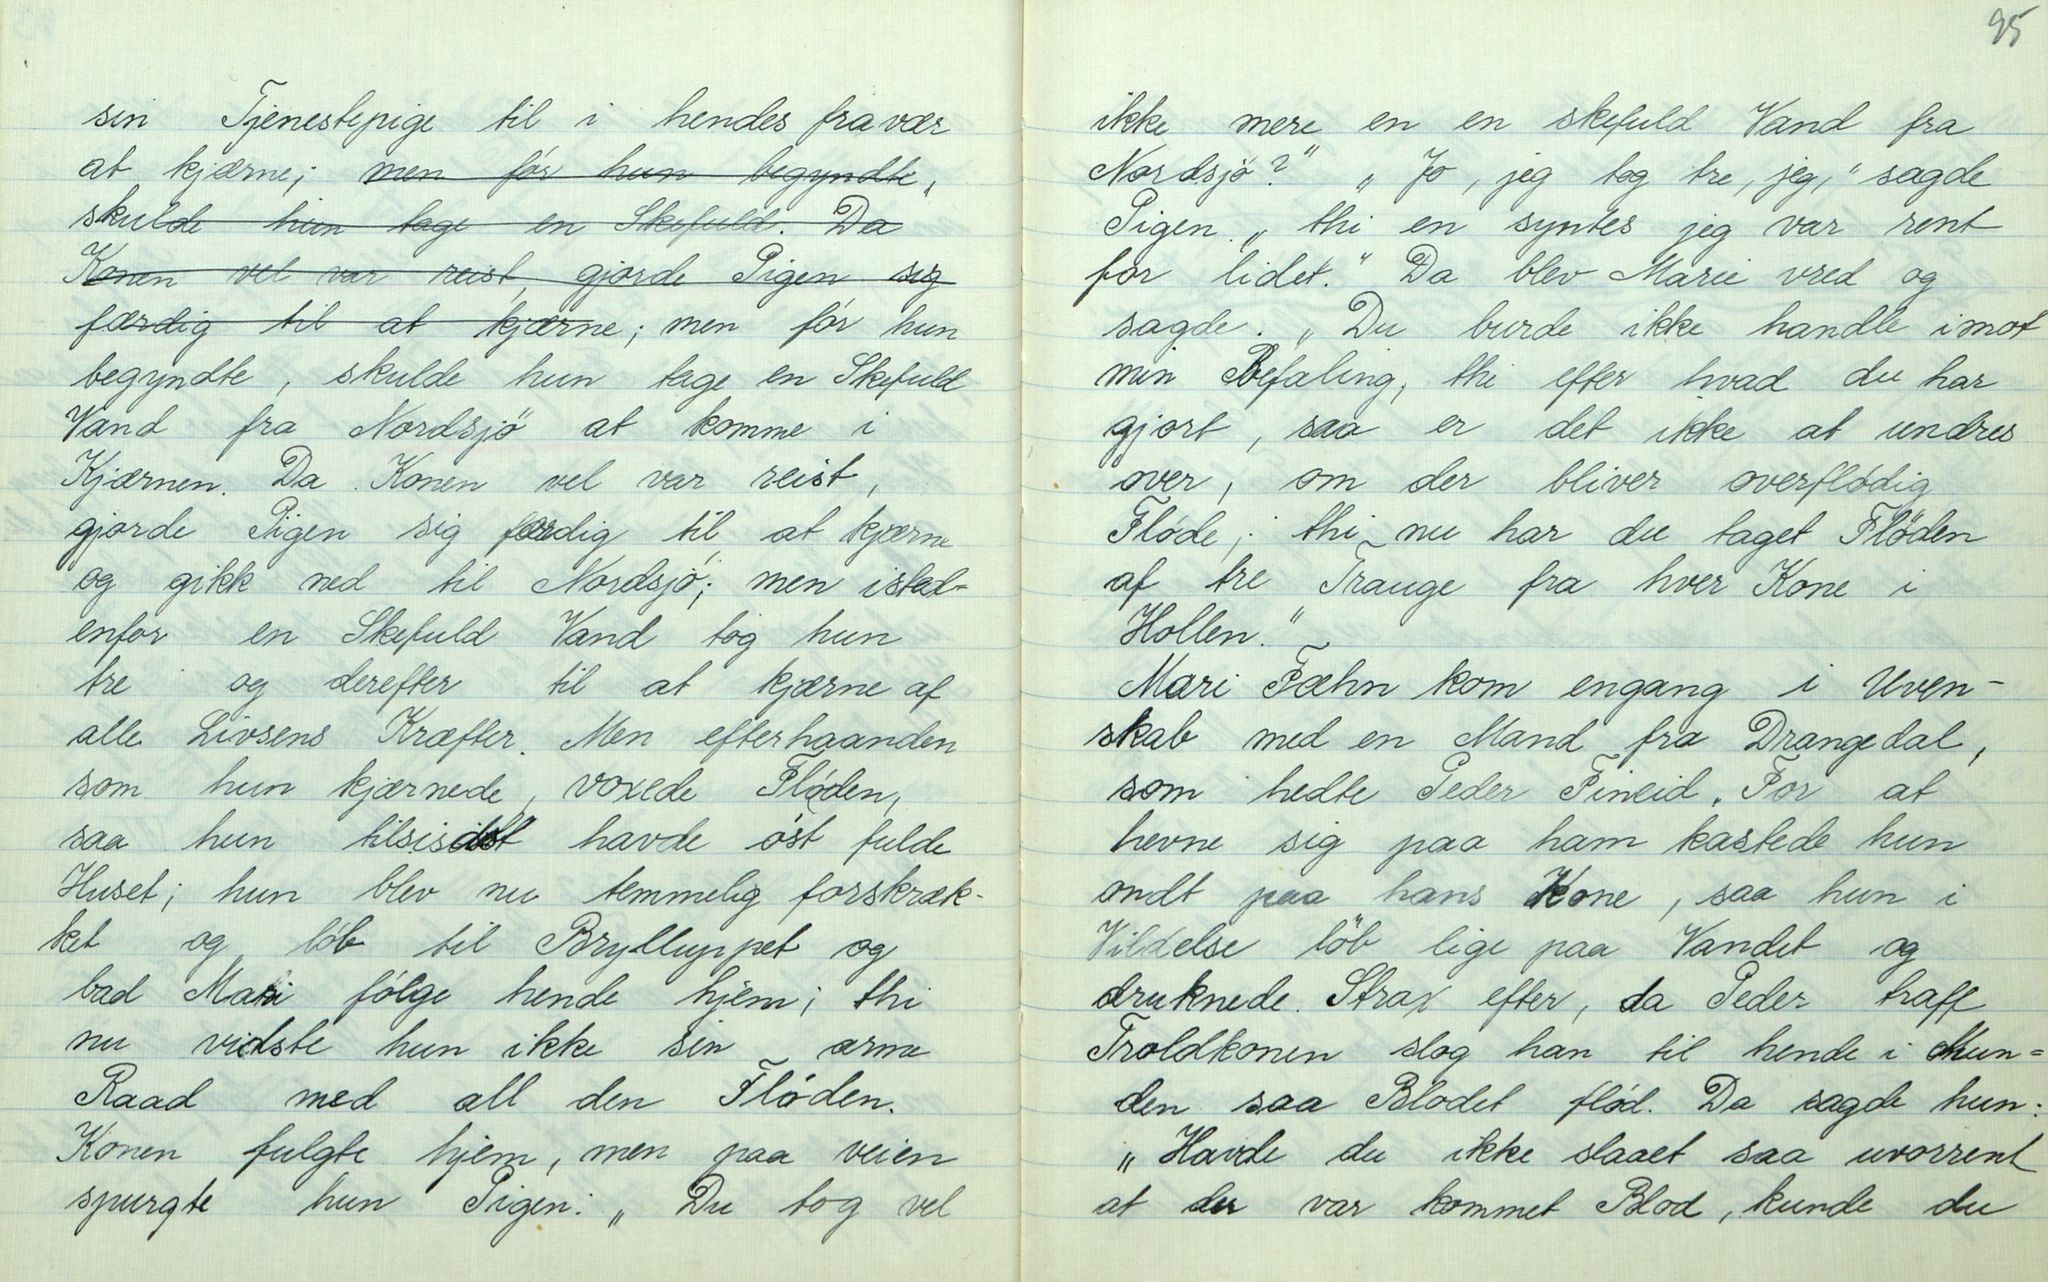 sin Tjenestepige til i hendes fravær
at kjærne; men før hun begyndte,
skulde hun tage en Skefuld. Da
Konen vel var reist, gjorde Pigen sig
færdig til at kjærne; men før hun
begyndte, skulde hun tage en Skefuld
Vand fra Nordsjö at komme i
Kjærnen. Da Konen vel var reist,
gjorde Pigen sig færdig til at kjærne
og gikk ned til Nordsjó; men istad-
enfor en Skefuld Vand tog hun
tre og derefter til at kjærne af
alle Livsens Kræfter. Men efterhaanden
som hun kjærnede, voxede Fløden,
saa hun tilsidst havde óst fulde
Huset; hun blev nu temmelig forskræk-
ket og løb til Brylluppet og
bad Mari fólge hende hjem; thi
nu vidste hun ikke sin arme
Raad med all den Flóden.
Konen fulgte hjem, men paa veien
spurgte hun Pigen: „Du tog vel
95
ikke mere en en skefuld Vand fra
Nordsjö?" „Jo, jeg tog tre, jeg," sagde
Pigen „thi en syntes jeg var rent
for lidet." Da blev Marie vred og
sagde. „Du burde ikke handle imot
min Befaling, thi efter hvad du har
gjort, saa er det ikke at undres
over, om der bliver overflódig
Flóde; thi nu har du taget Flöden
af tre Trauge fra hver Kone i
Hollen."
Mari Fæhn kom engang i Uven-
skab med en Mand fra Drangedal,
som hedte Peder Fineid. For at
hevne sig paa ham kastede hun
ondt paa hans Kone, saa hun i
Vildelse löb lige paa Vandet og
druknede. Strax efter, da Peder traff
Troldkonen slog han til hende i Mun=
den saa Blodet flód. Da sagde hun:
„Havde du ikke slaaet saa uvorrent
at der var kommet Blod, kunde du